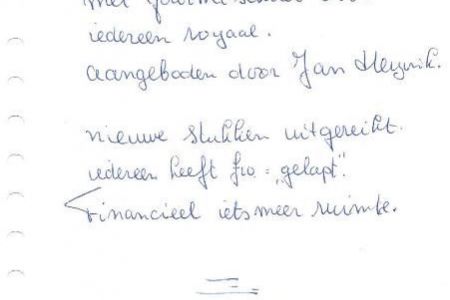 met
iedereen royaal.
aangeboden door Jan
nieuwe stukken uitgereikt.
iedereen heeft f10 = "gelapt".
Financieel iets meer ruimte.